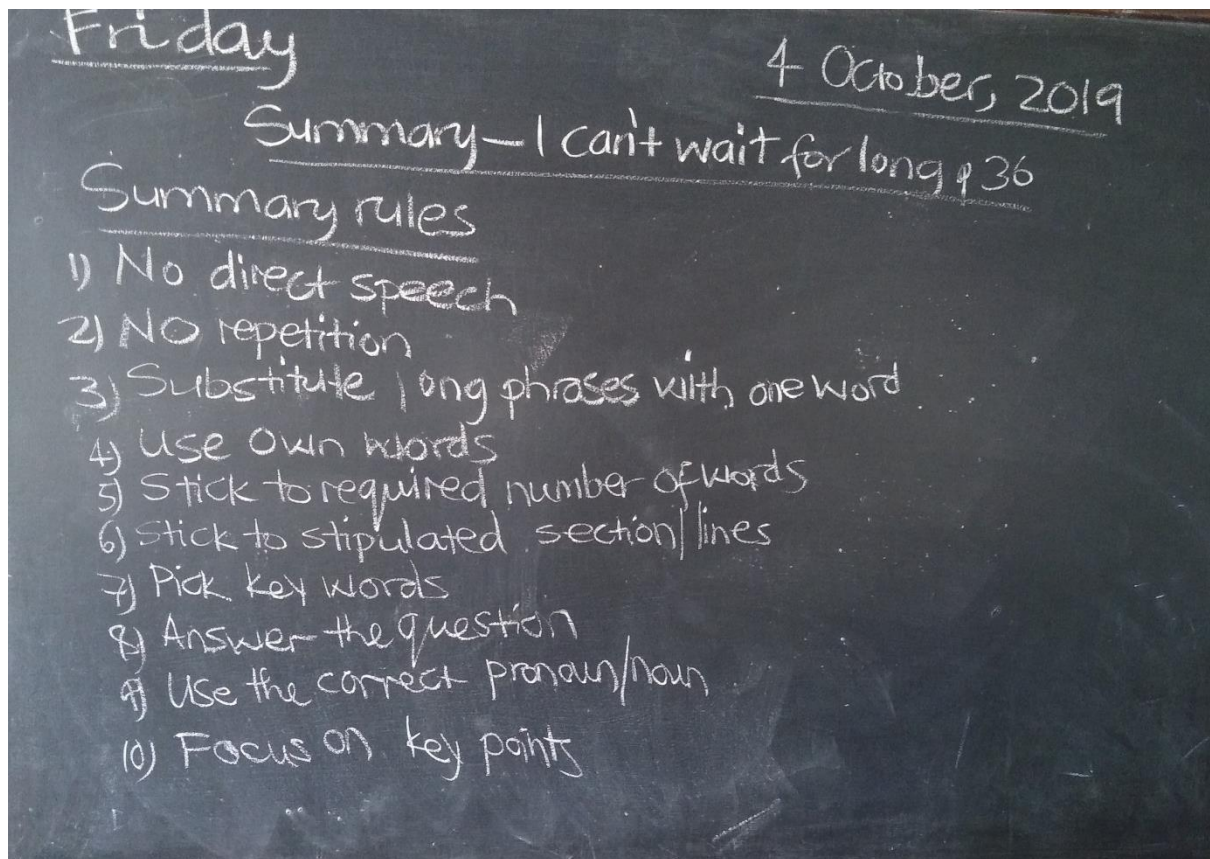 Friday
4 October, 2019
Summary - I can't wait for long p 36
Summary rules
1) No direct speech
2) No repetition
3) Substitute long phrases with one word
4) Use own words
5) Stick to required number of words
6) Stick to stipulated section/lines
7) Pick key words
8) Answer the question
9) Use the correct pronoun/noun
10) Focus on key points